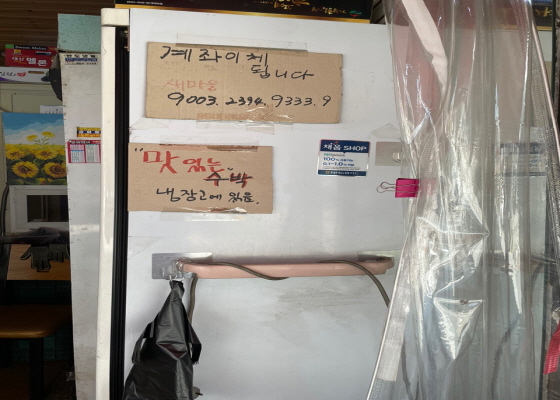 계좌이체
됩니다
새마을
9003.2394.9333.9
"맛있는"
수박
냉장고에 있음.
제로 SHOP